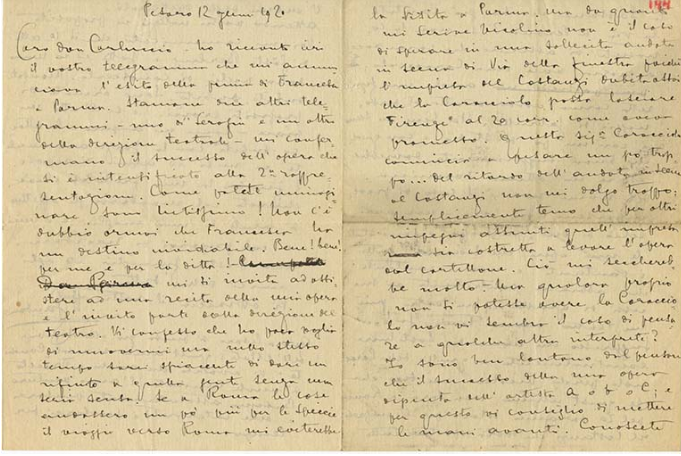 Pesaro 12 genn 1921
Caro don Carluccio - ho ricevuto ieri
il vostro telegramma che mi annun
ciava l'esito della prima di Francesca
a Parma. Stamane due altri tele-
grammi - uno di Serafin e un altro
della direzione teatrale - mi confer-
mano il successo dell'opera che
si è intensificato alla 2ª rappre
sentazione. Come potete immagi
nare sono lietissimo! Non c'è
dubbio ormai che Francesca ha
un destino mondiale. Bene! bene!
per me e per la ditta!
Da Parma mi si invita ad assi
stere ad una recita della mia opera
e l'invito parte dalla direzione del
teatro. Vi confesso che ho poca voglia
di muovermi ma nello stesso
tempo sarei spiacente di dare un
rifiuto a quella gente senza una
seria scusa. Se a Roma le cose
andassero un po' più per le spiccie
il viaggio verso Roma mi eviterebbe
144
la gita a Parma. ma da quanto
mi scrive Nicolino, non è il caso
di sperare in una sollecita andata
in scena di Via della finestra perchè
l'impresa del Costanzi dubita assai
che la Caracciolo possa lasciare
Firenze al 20 corr. come aveva
promesso. Questa sigª Caracciolo
comincia a pesare un po' trop
po... Del ritardo dell'andata in scena
al Costanzi non mi dolgo troppo:
semplicemente temo che per altri
impegni assunti quell'impresa
sia costretta a levare l'opera
dal cartellone. Ciò mi seccereb
be molto. Ma qualora proprio
non si potesse avere la Caraccio
lo non vi sembra il caso di pensa
re a qualche altra interprete?
Io sono ben lontano dal pensare
che il successo della mia opera
dipenda dall'artista A o B o C; e
per questo vi consiglio di mettere
le mani avanti. Conoscete